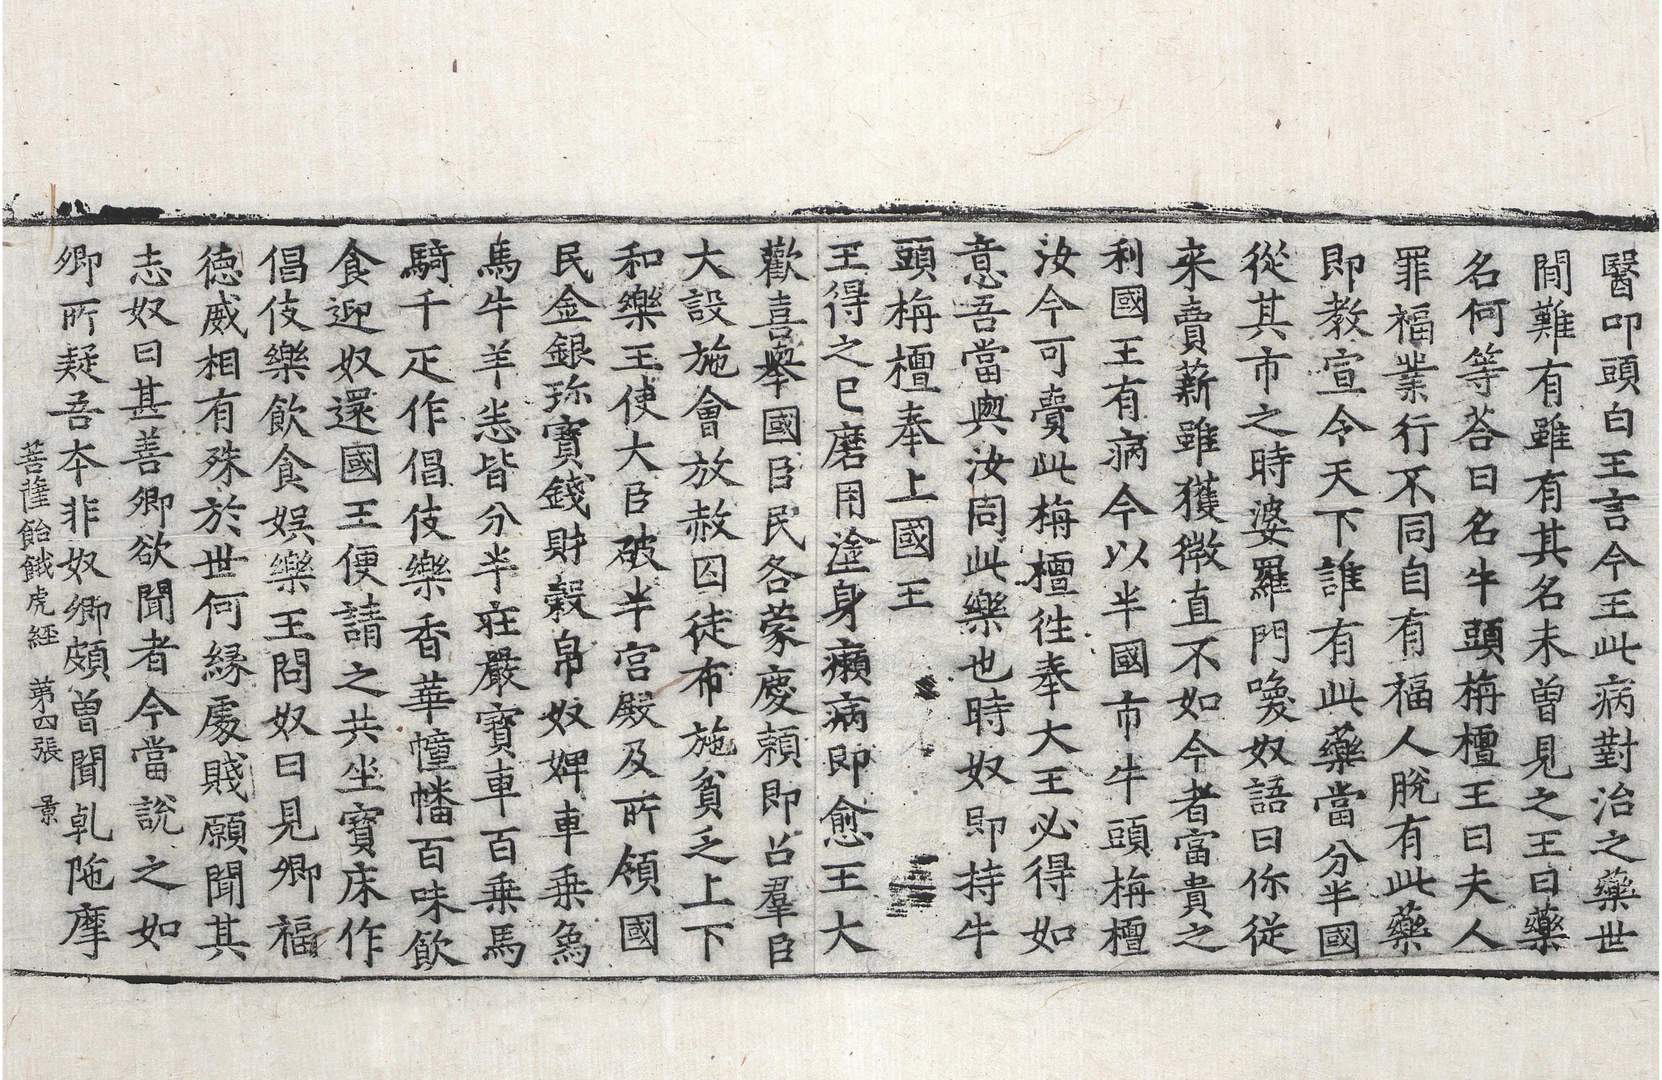 醫叩頭白王言今王此病對治之藥世
間難有雖有其名未曾見之王曰藥
名何等荅曰名牛頭栴檀王曰夫人
罪福業行不同自有福人脫有此藥
即教宣令天下誰有此藥當分半國
從其市之時婆羅門喚奴語曰你従
来賣薪雖獲微直不如今者富貴之
利國王有病今以半國市牛頭栴檀
汝今可賷此栴檀徃奉大王必得如
意吾當與汝同此樂也時奴即持牛
頭栴檀奉上國王
王得之已磨用塗身癩病即愈王大
歡喜舉國臣民各蒙慶頼即召羣臣
大設施會放赦囚徒布施貧乏上下
和樂王使大臣破半宮殿及所領國
民金銀珎寶錢財穀帛奴婢車乗象
馬牛羊悉皆分半莊嚴寶車百乗馬
騎千疋作倡伎樂香華幢幡百味飲
食迎奴還國王便請之共坐寶床作
倡伎樂飲食娛樂王問奴曰見卿福
徳威相有殊於世何緣處賤願聞其
志奴曰甚善卿欲聞者今當說之如
卿所疑吾夲非奴卿頗曽聞乹陁摩
菩薩飴餓虎経 第四張 景